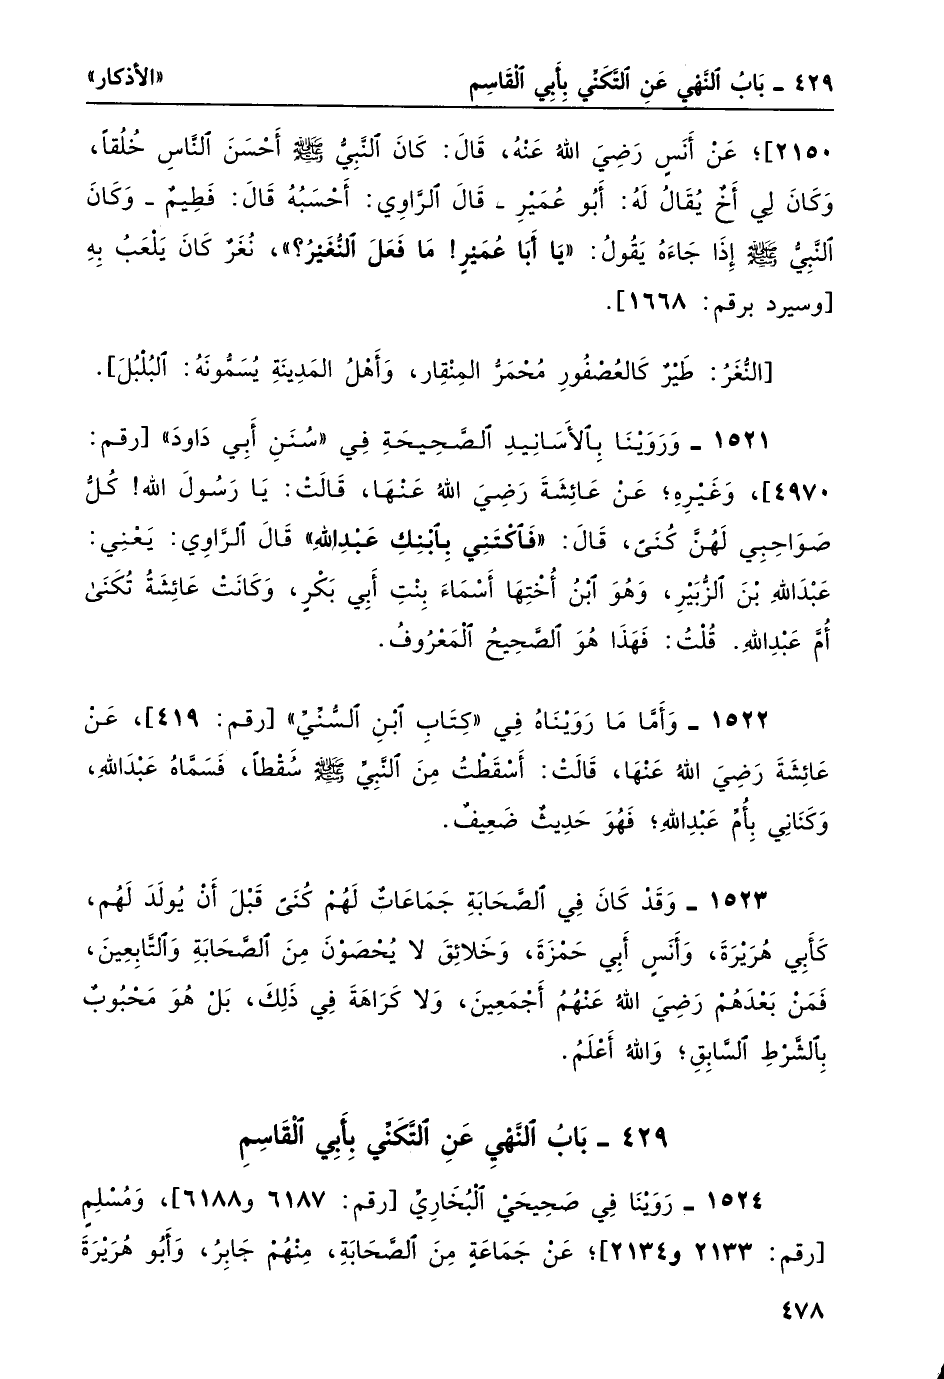 ٤٢٩ ـ بَابُ ٱلنَّهْيِ عَنِ ٱلتَّكَنِّي بِأَبِي ٱلْقَاسِمِ «الأذكار»
٢١٥٠]؛ عَنْ أَنَسٍ رَضِيَ اللهُ عَنْهُ، قَالَ: كَانَ ٱلنَّبِيُّ ﷺ أَحْسَنَ ٱلنَّاسِ خُلُقاً،
وَكَانَ لِي أَخٌ يُقَالُ لَهُ: أَبُو عُمَيْرٍ ـ قَالَ ٱلرَّاوِي: أَحْسَبُهُ قَالَ: فَطِيمٌ ـ وَكَانَ
ٱلنَّبِيُّ ﷺ إِذَا جَاءَهُ يَقُولُ: «يَا أَبَا عُمَيْرٍ! مَا فَعَلَ ٱلنُّغَيْرُ؟»، نُغَرٌ كَانَ يَلْعَبُ بِهِ
[وسيرد برقم: ١٦٦٨].
[النُّغَرُ: طَيْرٌ كَالعُصْفُورِ مُحْمَرُّ المِنْقَارِ، وَأَهْلُ المَدِينَةِ يُسَمُّونَهُ: ٱلبُلْبُلَ].
١٥٢١ ـ وَرَوَيْنَا بِٱلأَسَانِيدِ ٱلصَّحِيحَةِ فِي «سُنَنِ أَبِي دَاودَ» [رقم:
٤٩٧٠]، وَغَيْرِهِ؛ عَنْ عَائِشَةَ رَضِيَ اللهُ عَنْهَا، قَالَتْ: يَا رَسُولَ الله! كُلُّ
صَوَاحِبِي لَهُنَّ كُنَىً، قَالَ: «فَٱكْتَنِي بِٱبْنِكِ عَبْدِاللهِ» قَالَ ٱلرَّاوِي: يَعْنِي:
عَبْدَاللهِ بْنَ ٱلزُّبَيْرِ، وَهُوَ ٱبْنُ أُخْتِهَا أَسْمَاءَ بِنْتِ أَبِي بَكْرٍ، وَكَانَتْ عَائِشَةُ تُكَنَىٰ
أُمَّ عَبْدِاللهِ. قُلْتُ: فَهَذَا هُوَ ٱلصَّحِيحُ ٱلْمَعْرُوفُ.
١٥٢٢ ـ وَأَمَّا مَا رَوَيْنَاهُ فِي «كِتَابِ ٱبْنِ ٱلسُّنِّيِّ» [رقم: ٤١٩]، عَنْ
عَائِشَةَ رَضِيَ اللهُ عَنْهَا، قَالَتْ: أَسْقَطْتُ مِنَ ٱلنَّبِيِّ ﷺ سُقْطاً، فَسَمَّاهُ عَبْدَاللهِ،
وَكَنَانِي بِأُمِّ عَبْدِاللهِ؛ فَهُوَ حَدِيثٌ ضَعِيفٌ.
١٥٢٣ ـ وَقَدْ كَانَ فِي ٱلصَّحَابَةِ جَمَاعَاتٌ لَهُمْ كُنَىً قَبْلَ أَنْ يُولَدَ لَهُم،
كَأَبِي هُرَيْرَةَ، وَأَنَسٍ أَبِي حَمْزَةَ، وَخَلائِقَ لا يُحْصَوْنَ مِنَ ٱلصَّحَابَةِ وَٱلتَّابِعِينَ،
فَمَنْ بَعْدَهُمْ رَضِيَ اللهُ عَنْهُمُ أَجْمَعِينَ، وَلا كَرَاهَةَ فِي ذَلِكَ، بَلْ هُوَ مَحْبُوبٌ
بِٱلشَّرْطِ ٱلسَّابِقِ؛ وَاللهُ أَعْلَمُ.
٤٢٩ ـ بَابُ ٱلنَّهْيِ عَنِ ٱلتَّكَنِّي بِأَبِي ٱلْقَاسِمِ
١٥٢٤ ـ رَوَيْنَا فِي صَحِيحَيْ ٱلْبُخَارِيِّ [رقم: ٦١٨٧ و٦١٨٨]، وَمُسْلِمٍ
[رقم: ٢١٣٣ و٢١٣٤]؛ عَنْ جَمَاعَةٍ مِنَ ٱلصَّحَابَةِ، مِنْهُمْ جَابِرُ، وَأَبُو هُرَيْرَةَ
٤٧٨